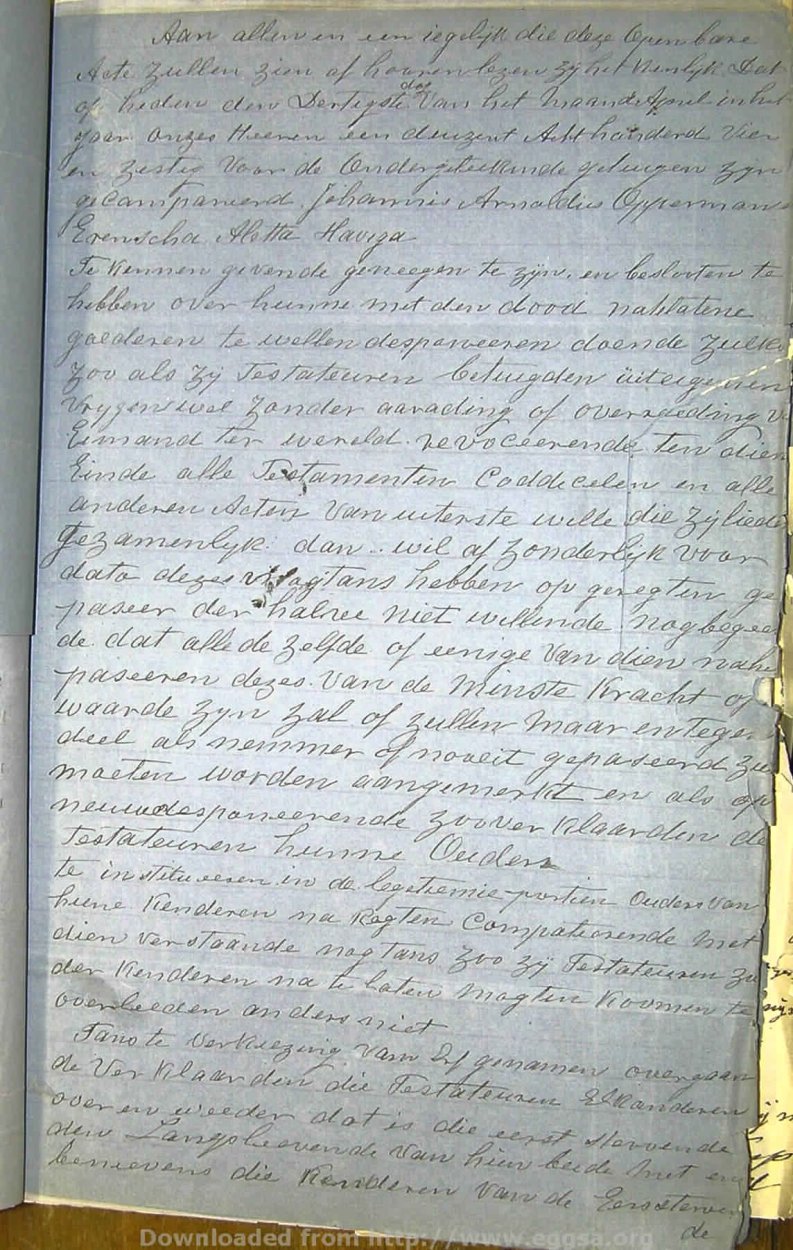 Aan allen en een iegelijk die deze Openbare
Acte Zullen Zien of hooren lezen zy het kenlyk Dat
op heden den Dertigste dag Van het maand April in het
Jaar Onzes Heeren een duizent Acht honderd Vier
en Zestig Voor de Ondergeteekende getuigen zyn
gecompareerd Johannis Arnoldus Opperman
Aletta Haviza
Te kennen gevende geneegen te zyn, en besloten te
hebben over hunne met den dood nalatene
goederen te willen desponeeren doende Zulks
Zoo als Zy Testateuren betuigden uit eigenen
Vrygen wil Zonder aarading of overreeding v
Iemand ter wereld revoceerende ten dien
Einde alle Testamenten Coddecelen en alle
anderen Acten Van uiterste wille die Zy lieden
Gezamenlyk dan wil af Zonderlyk voor
dato dezes hebben op geregten ge
paseer der halve niet willende nog begee
de dat alle de Zelfde of eenige Van dien nahe
paseeren dezes Van de Minste Kracht of
waarde Zyn Zal of Zullen Maar en tegen
deel als nemmer of nooit gepaseerd Zu
moeten worden aangemerkt en als op
neuw desponeerende Zoo ver klaarden de
Testateuren hunne Ouders
te institueeren in de legetiemie portien Ouders Van
hune Kenderen na Regten Competeerende Met
dien verstaande nog tans Zoo Zy Testateuren Zo
der Kenderen na te laten Mogten Koomen te
overleeden anders niet
Tans te Verkiezing Van Erf genamen overgaan
de Ver klaarden die Testateuren Elkanderen
over en weeder dat is die eerst stervende
den Langsleevende Van hun beide Met en
beneevens die Kenderen Van de Eerssterven
de
Downloaded from http://www.eggsa.org